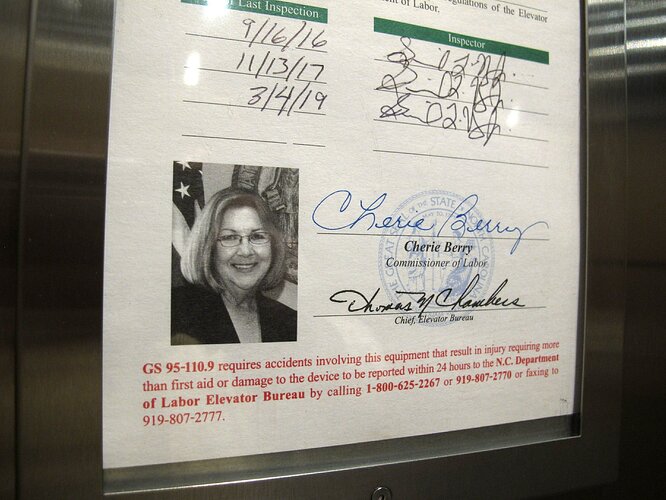 gulations of the Elevator
nt of Labor.
Last Inspection
Inspector
9/16/16
11/13/17
3/4/19
Cherie Berry
Cherie Berry
Commissioner of Labor
Thomas N Chambers
Chief, Elevator Bureau
GS 95-110.9 requires accidents involving this equipment that result in injury requiring more
than first aid or damage to the device to be reported within 24 hours to the N.C. Department
of Labor Elevator Bureau by calling 1-800-625-2267 or 919-807-2770 or faxing to
919-807-2777.